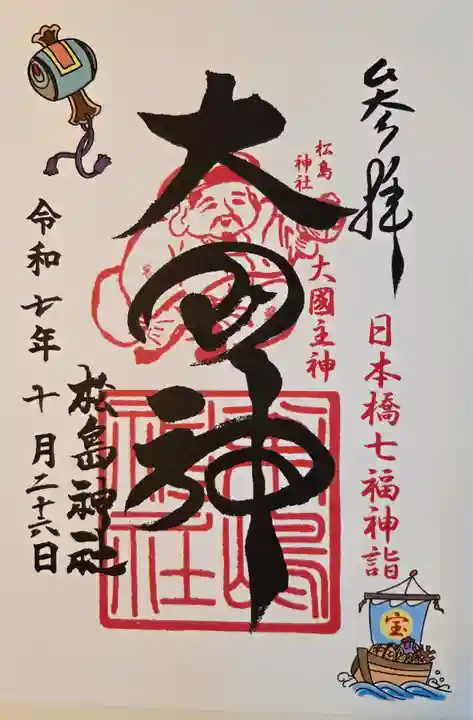 参拝
日本橋七福神詣
宝
松島
神社
大國主神
大国神
松島神社
松島神社
令和七年十月二十六日